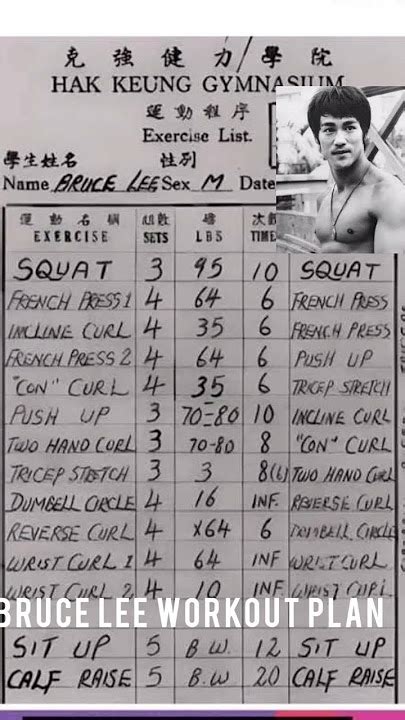 克強健力學院
HAK KEUNG GYMNASIUM
運動程序
Exercise List.
學生姓名 性別
Name BRUCE LEE Sex M Date
運動名稱 組數 磅 次數
EXERCISE SETS LBS TIME
SQUAT 3 95 10 SQUAT
FRENCH PRESS 1 4 64 6 FRENCH PRESS
INCLINE CURL 4 35 6 FRENCH PRESS
FRENCH PRESS 2 4 64 6 PUSH UP
"CON" CURL 4 35 6 TRICEP STRETCH
PUSH UP 3 70-80 10 INCLINE CURL
TWO HAND CURL 3 70-80 8 "CON" CURL
TRICEP STRETCH 3 3 8(6) TWO HAND CURL
DUMBELL CIRCLE 4 16 INF. REVERSE CURL
REVERSE CURL 4 X64 6 DUMBELL CIRCLE
WRIST CURL 1 4 64 INF WRIST CURL
WRIST CURL 2 4 10 INF. WRIST CURL
BRUCE LEE WORKOUT PLAN
SIT UP 5 B.W. 12 SIT UP
CALF RAISE 5 B.W 20 CALF RAISE